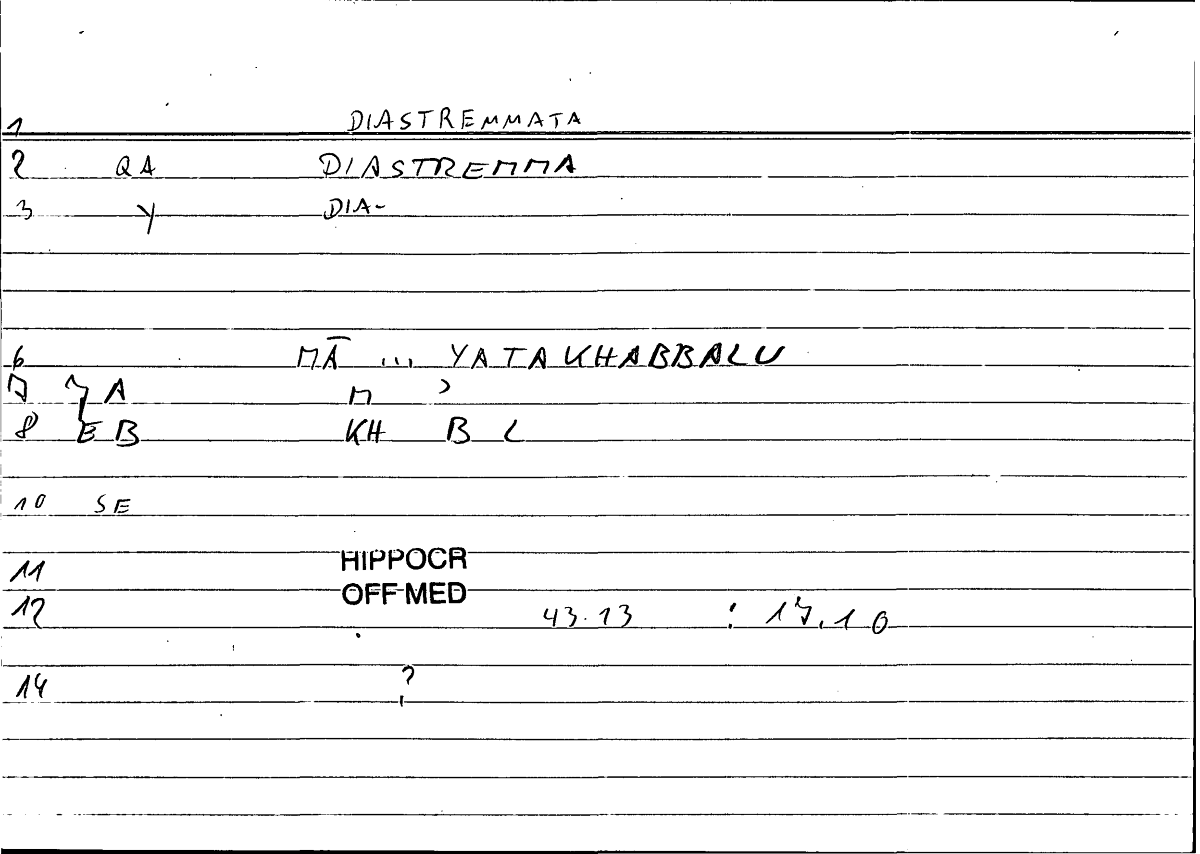 1 DIASTREMMATA
2 QA DIASTREMMA
3 Y DIA-
6 MĀ ... YATAKHABBALU
7 A M ʾ
8 EB KH B L
10 SE
11 HIPPOCR
12 OFF-MED 43.13 : 17.10
14 ?